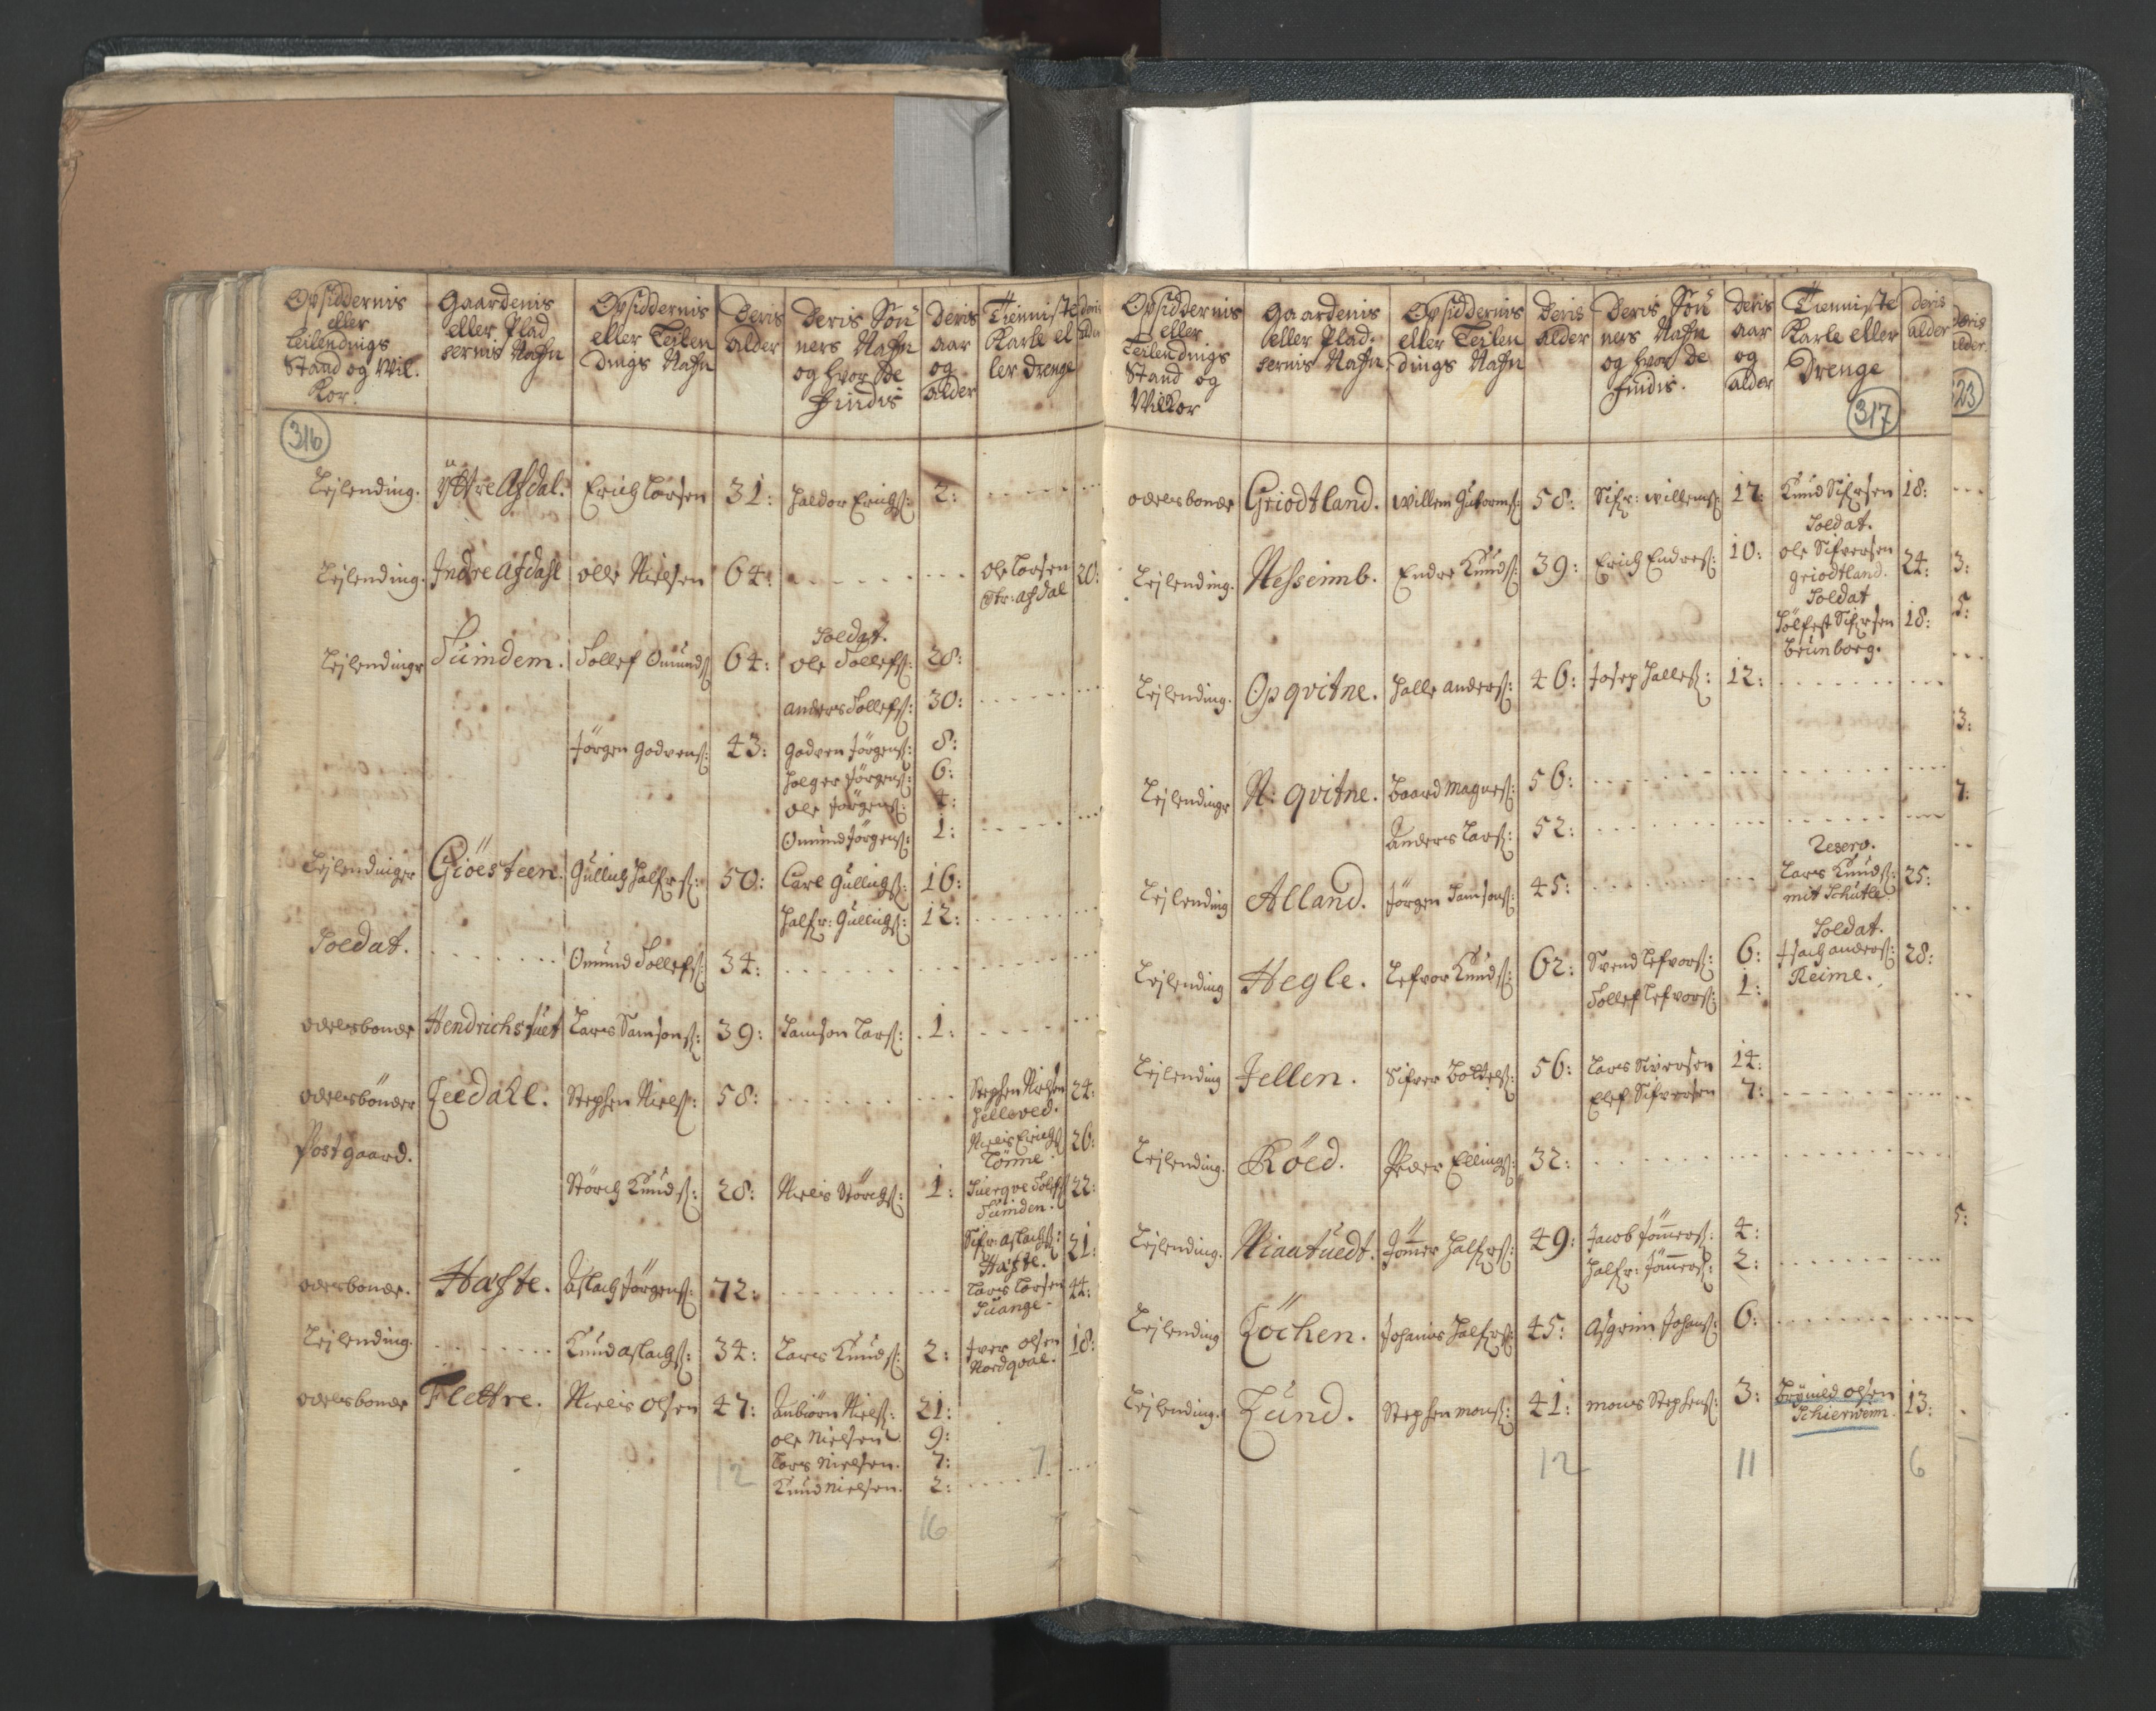 Opsiddernis eller Leilendings Stand og Wil. Kor. | Gaardenis eller Plad sernis Nafn | Opsiddernis eller Leilen dings Nafn | Deris alder | Deris Sön ners Nafn og hvor de findis | Deris aar og alder | Tienniste Karle el ler drenge | Deris alder
316
Lejlending. | Ÿttre Afdal. | Erich Larsen | 31: | Haldor Erichs: | 2:
Lejlending. | Indre Afdahl | olle Nielsen | 64: | Ole Larsen Ytr: afdal | 20:
Lejlendinge | Sûndem. | Tollef Omunds: | 64: | Soldat. Ole Tollefs: | 28:
anders Tollefs: | 30:
Jörgen Godvens: | 43: | Godven Jörgens: | 8:
Holger Jörgens: | 6:
Ole Jörgens: | 4:
Omund Jörgens: | 1:
Lejlendinger | Giöesteen. | Gullich Halfrs: | 50: | Carl Gullichs: | 16:
Halfr: Gullichs: | 12:
Soldat. | Omund Tollefs: | 34:
odelsbonde | Hendrichstuet | Lars Samsons: | 39: | Samson Lars: | 1:
odelsbönder | Leedahl. | Stephen Niels: | 58: | Stephen Nielsen Helleved. | 24:
Postgaard. | Niels Erichs: Tönne. | 26:
Störch Knuds: | 28: | Niels Störchs: | 1: | Sûerqve Tolefs: Sûnden. | 22:
Sifr: aslachs: Hafte. | 21:
odelsbonde. | Hafte. | Aslach Jörgens: | 72: | Lars Larsen Süange. | 44:
Lejlending. | Knud aslachs: | 34: | Lars Knuds: | 2: | Iver olsen Nordqval. | 18:
odelsbonde | Flettre. | Niels olsen | 47: | Anbiörn Niels: | 21:
ole Nielsen | 9:
Lars Nielsen. | 7:
Knud Nielsen. | 2:
12 | 7
16
Opsiddernis eller Leilendings Stand og Wilkor | Gaardenis eller Plad: sernis Nafn | Opsiddernis eller Leilen dings Nafn | Deris alder | Deris Sön ners Nafn og hvor de findis. | Deris aar og alder | Tienniste Karle eller Drenge | Deris alder
317
odelsbonde | Griodtland. | Willem Gutorms: | 58: | Sifr: willems: | 17: | Knud Sifrsen | 18:
Lejlending. | Nesseimb. | Endre Knuds: | 39: | Erich Endres: | 10: | Soldat. ole Sifversen griodtland. | 24:
Soldat Sölfest Sifrsen Brûnborg. | 18:
Lejlending. | Opqvitne. | Halle anders: | 46: | Josep Halles: | 12:
Lejlendinge | N: qvitne. | Baard Magnes: | 56:
Anders Lars: | 52:
Lejlending | Alland. | Jörgen Samsons: | 45: | Reserv. Lars Knuds: mit Schutle | 25:
Lejlending | Hegle. | Lefvor Knuds: | 62: | Svend Lefvors: | 6: | Soldat. Isach anders: Reime. | 28:
Tollef Lefvors: | 1:
Lejlending | Jellen. | Sifver Bottels: | 56: | Lars Siversen | 14:
Elef Sifversen | 7:
Lejlending. | Röed. | Peder Ellings: | 32:
Lejlending. | Niautuedt. | Jömmer Halfrs: | 49: | Jacob Jömmers: | 4:
Halfr: Jömmers: | 2:
Lejlending | Löchen. | Johanis Halfrs: | 45: | Asgrim Johans: | 6:
Lejlending. | Lund. | Stephen mons: | 41: | mons Stephens: | 3: | Brynild olsen Schierwenn | 13:
12 | 11 | 6